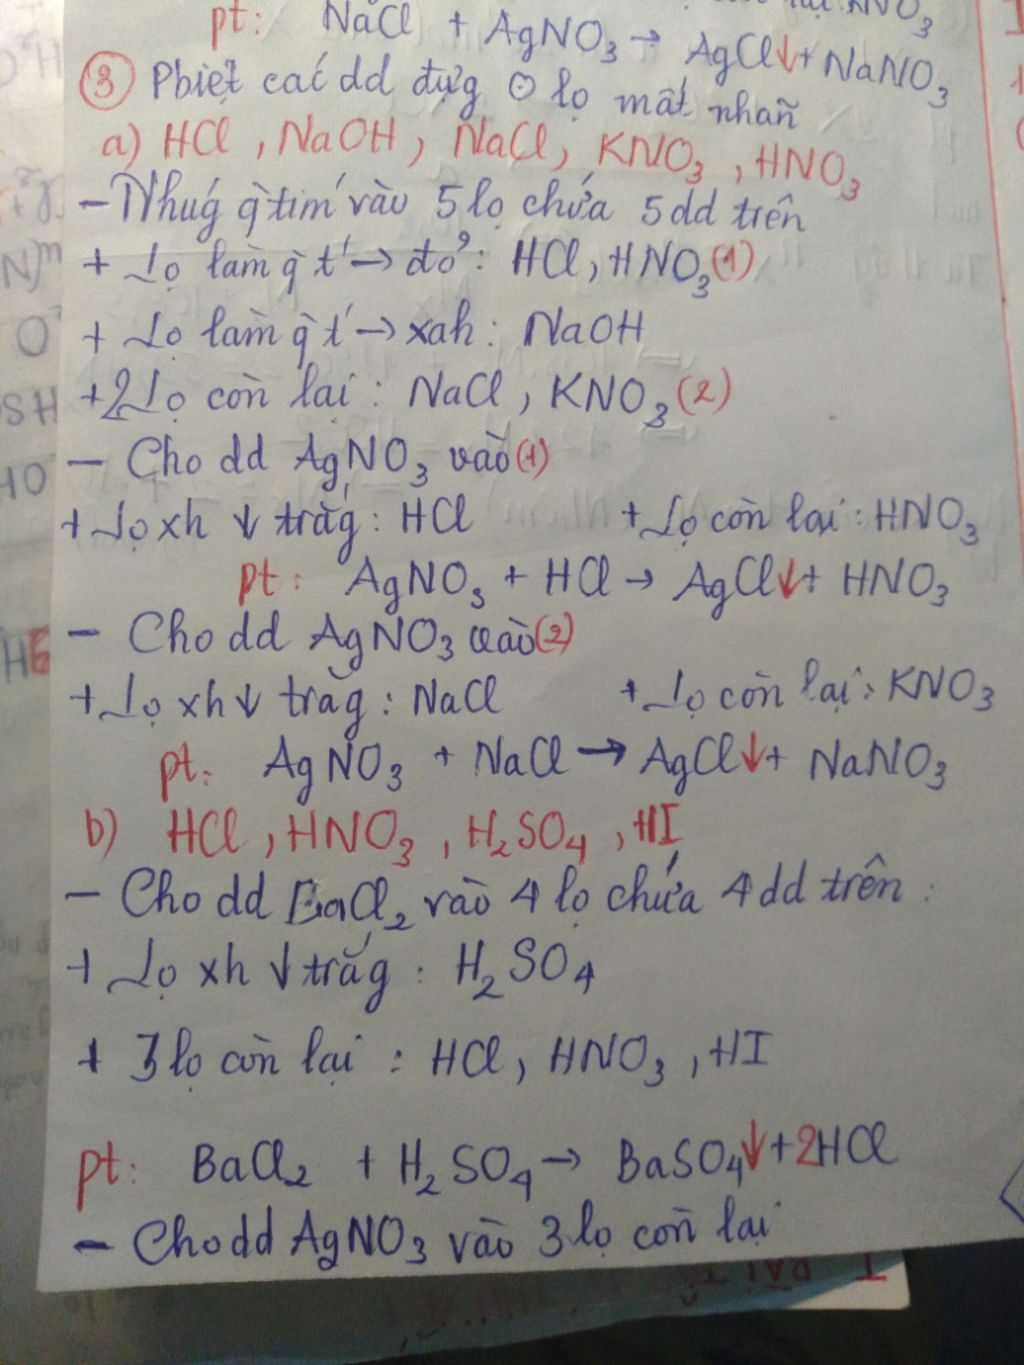 pt: NaCl + AgNO₃ → AgCl↓ + NaNO₃
③ Pbiệt các dd đựg ⊙ lọ mất nhãn
a) HCl, NaOH, NaCl, KNO₃, HNO₃
- Nhúg q̀ tím vào 5 lọ chứa 5 dd trên
+ Lọ làm q̀ t́ → đỏ: HCl, HNO₃ (1)
+ Lọ làm q̀ t́ → xah: NaOH
+ 2 lọ còn lại: NaCl, KNO₃ (2)
- Cho dd AgNO₃ vào (1)
+ Lọ xh ↓ trắg: HCl + Lọ còn lại: HNO₃
pt: AgNO₃ + HCl → AgCl↓ + HNO₃
- Cho dd AgNO₃ vào (2)
+ Lọ xh ↓ trắg: NaCl + Lọ còn lại: KNO₃
pt: AgNO₃ + NaCl → AgCl↓ + NaNO₃
b) HCl, HNO₃, H₂SO₄, HI
- Cho dd BaCl₂ vào 4 lọ chứa 4 dd trên:
+ Lọ xh ↓ trắg: H₂SO₄
+ 3 lọ còn lại: HCl, HNO₃, HI
pt: BaCl₂ + H₂SO₄ → BaSO₄↓ + 2HCl
- Cho dd AgNO₃ vào 3 lọ còn lại